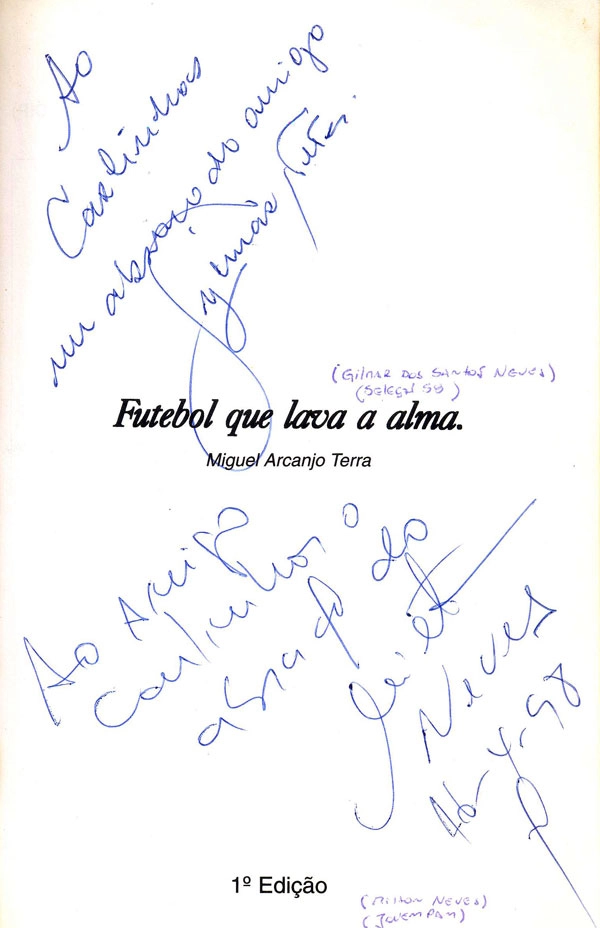 Ao
Carlinhos
um abraço do amigo
(Gilmar dos Santos Neves)
(Seleçã 59)
Futebol que lava a alma.
Miguel Arcanjo Terra
Ao Amigo
Carlinhos o
abraço do
Milton
Neves
1º Edição
(Milton Neves)
(Jovem Pam)